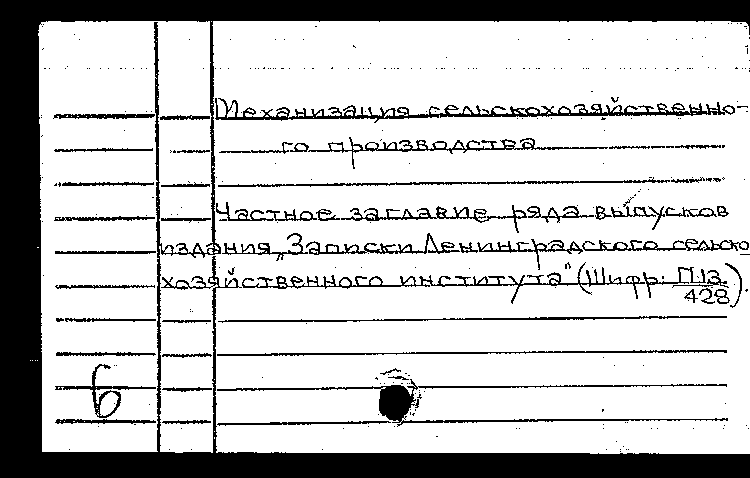 Механизация сельскохозяйственно-
го производства
Частное заглавие ряда выпусков
издания „Записки Ленинградского сельско
хозяйственного института" (Шифр: П13
428).
6